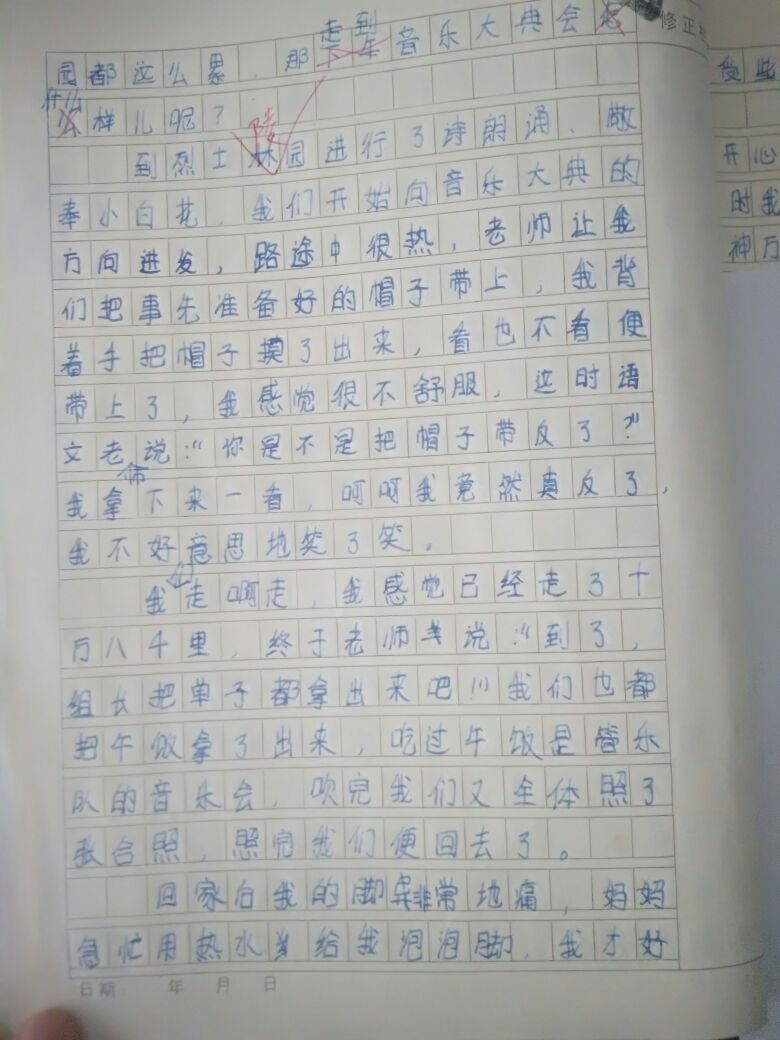 走到
园都这么累，那下午音乐大典会怎
什么
么样儿呢？
陵
到烈士林园进行了诗朗诵、敬
奉小白花，我们开始向音乐大典的
方向进发，路途中很热，老师让我
们把事先准备好的帽子带上，我背
着手把帽子摸了出来，看也不看便
带上了，我感觉很不舒服，这时语
文老说：“你是不是把帽子带反了？”
师
我拿下来一看，呵呵我竟然真反了，
我不好意思地笑了笑。
们
我走啊走，我感觉已经走了十
万八千里，终于老师说：“到了，
组长把单子都拿出来吧！”我们也都
把午饭拿了出来，吃过午饭是管乐
队的音乐会，吹完我们又全体照了
张合照，照完我们便回去了。
回家后我的脚非常地痛，妈妈
急忙用热水给我泡泡脚，我才好
日期 年 月 日
修正
受些
开心
时我
神万